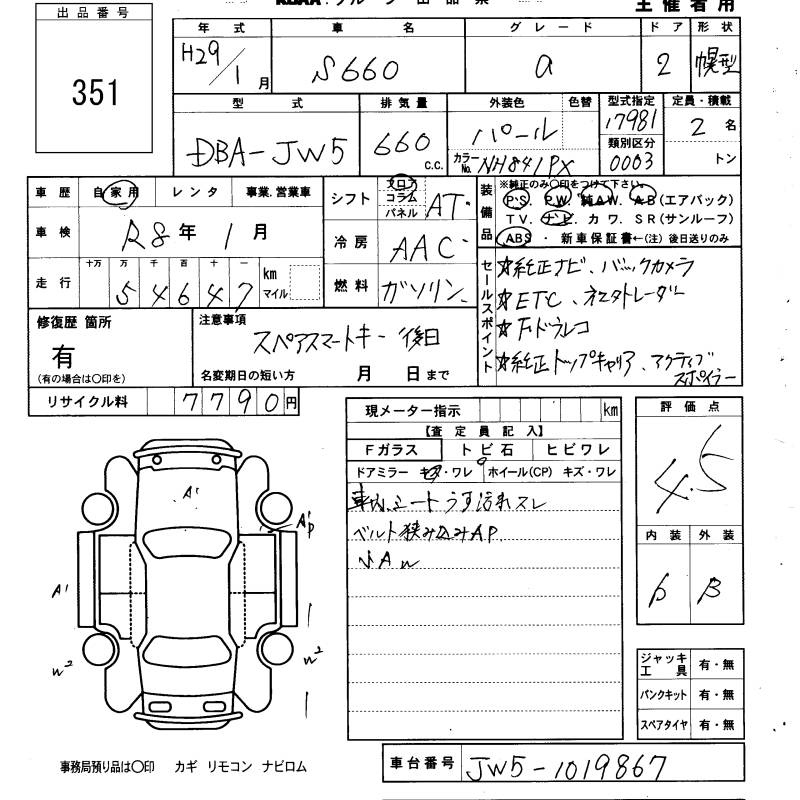 出品番号
351
主催者用
年式 車名 グレード ドア 形状
H29/1月 S660 α 2 幌型
型式 排気量 外装色 色替 型式指定 定員・積載
DBA-JW5 660 c.c. パール 17981 2名
カラーNo. NH841PX 類別区分 0003 トン
車歴 自家用 レンタ 事業.営業車
シフト フロア コラム パネル AT
装備品 ※純正のみ〇印をつけて下さい。
P.S. P.W. 純A.W. A.B(エアバック)
TV. ナビ カワ. SR(サンルーフ)
ABS ・ 新車保証書←(注) 後日送りのみ
車検 R8年1月
冷房 AAC
走行 十万 万 千 百 十 一 km マイル
54647
燃料 ガソリン
セールスポイント
☆純正ナビ、バックカメラ
☆ETC、
☆F.ドラレコ
☆純正トップキャリア、アクティブ
スポイラー
修復歴 箇所
有
(有の場合は〇印を)
注意事項
スペアスマートキー後日
名変期日の短い方 月 日まで
リサイクル料 7790円
現メーター指示 km
【査定員記入】
Fガラス トビ石 ヒビワレ
ドアミラー キズ・ワレ ホイール(CP) キズ・ワレ
車内シートうす汚れスレ
ベルト挟み込みAP
小AW
評価点
4.5
内装 外装
B B
A'
A'P
A'
W2
W2
ジャッキ工具 有・無
パンクキット 有・無
スペアタイヤ 有・無
事務局預り品は〇印 カギ リモコン ナビロム
車台番号 JW5-1019867